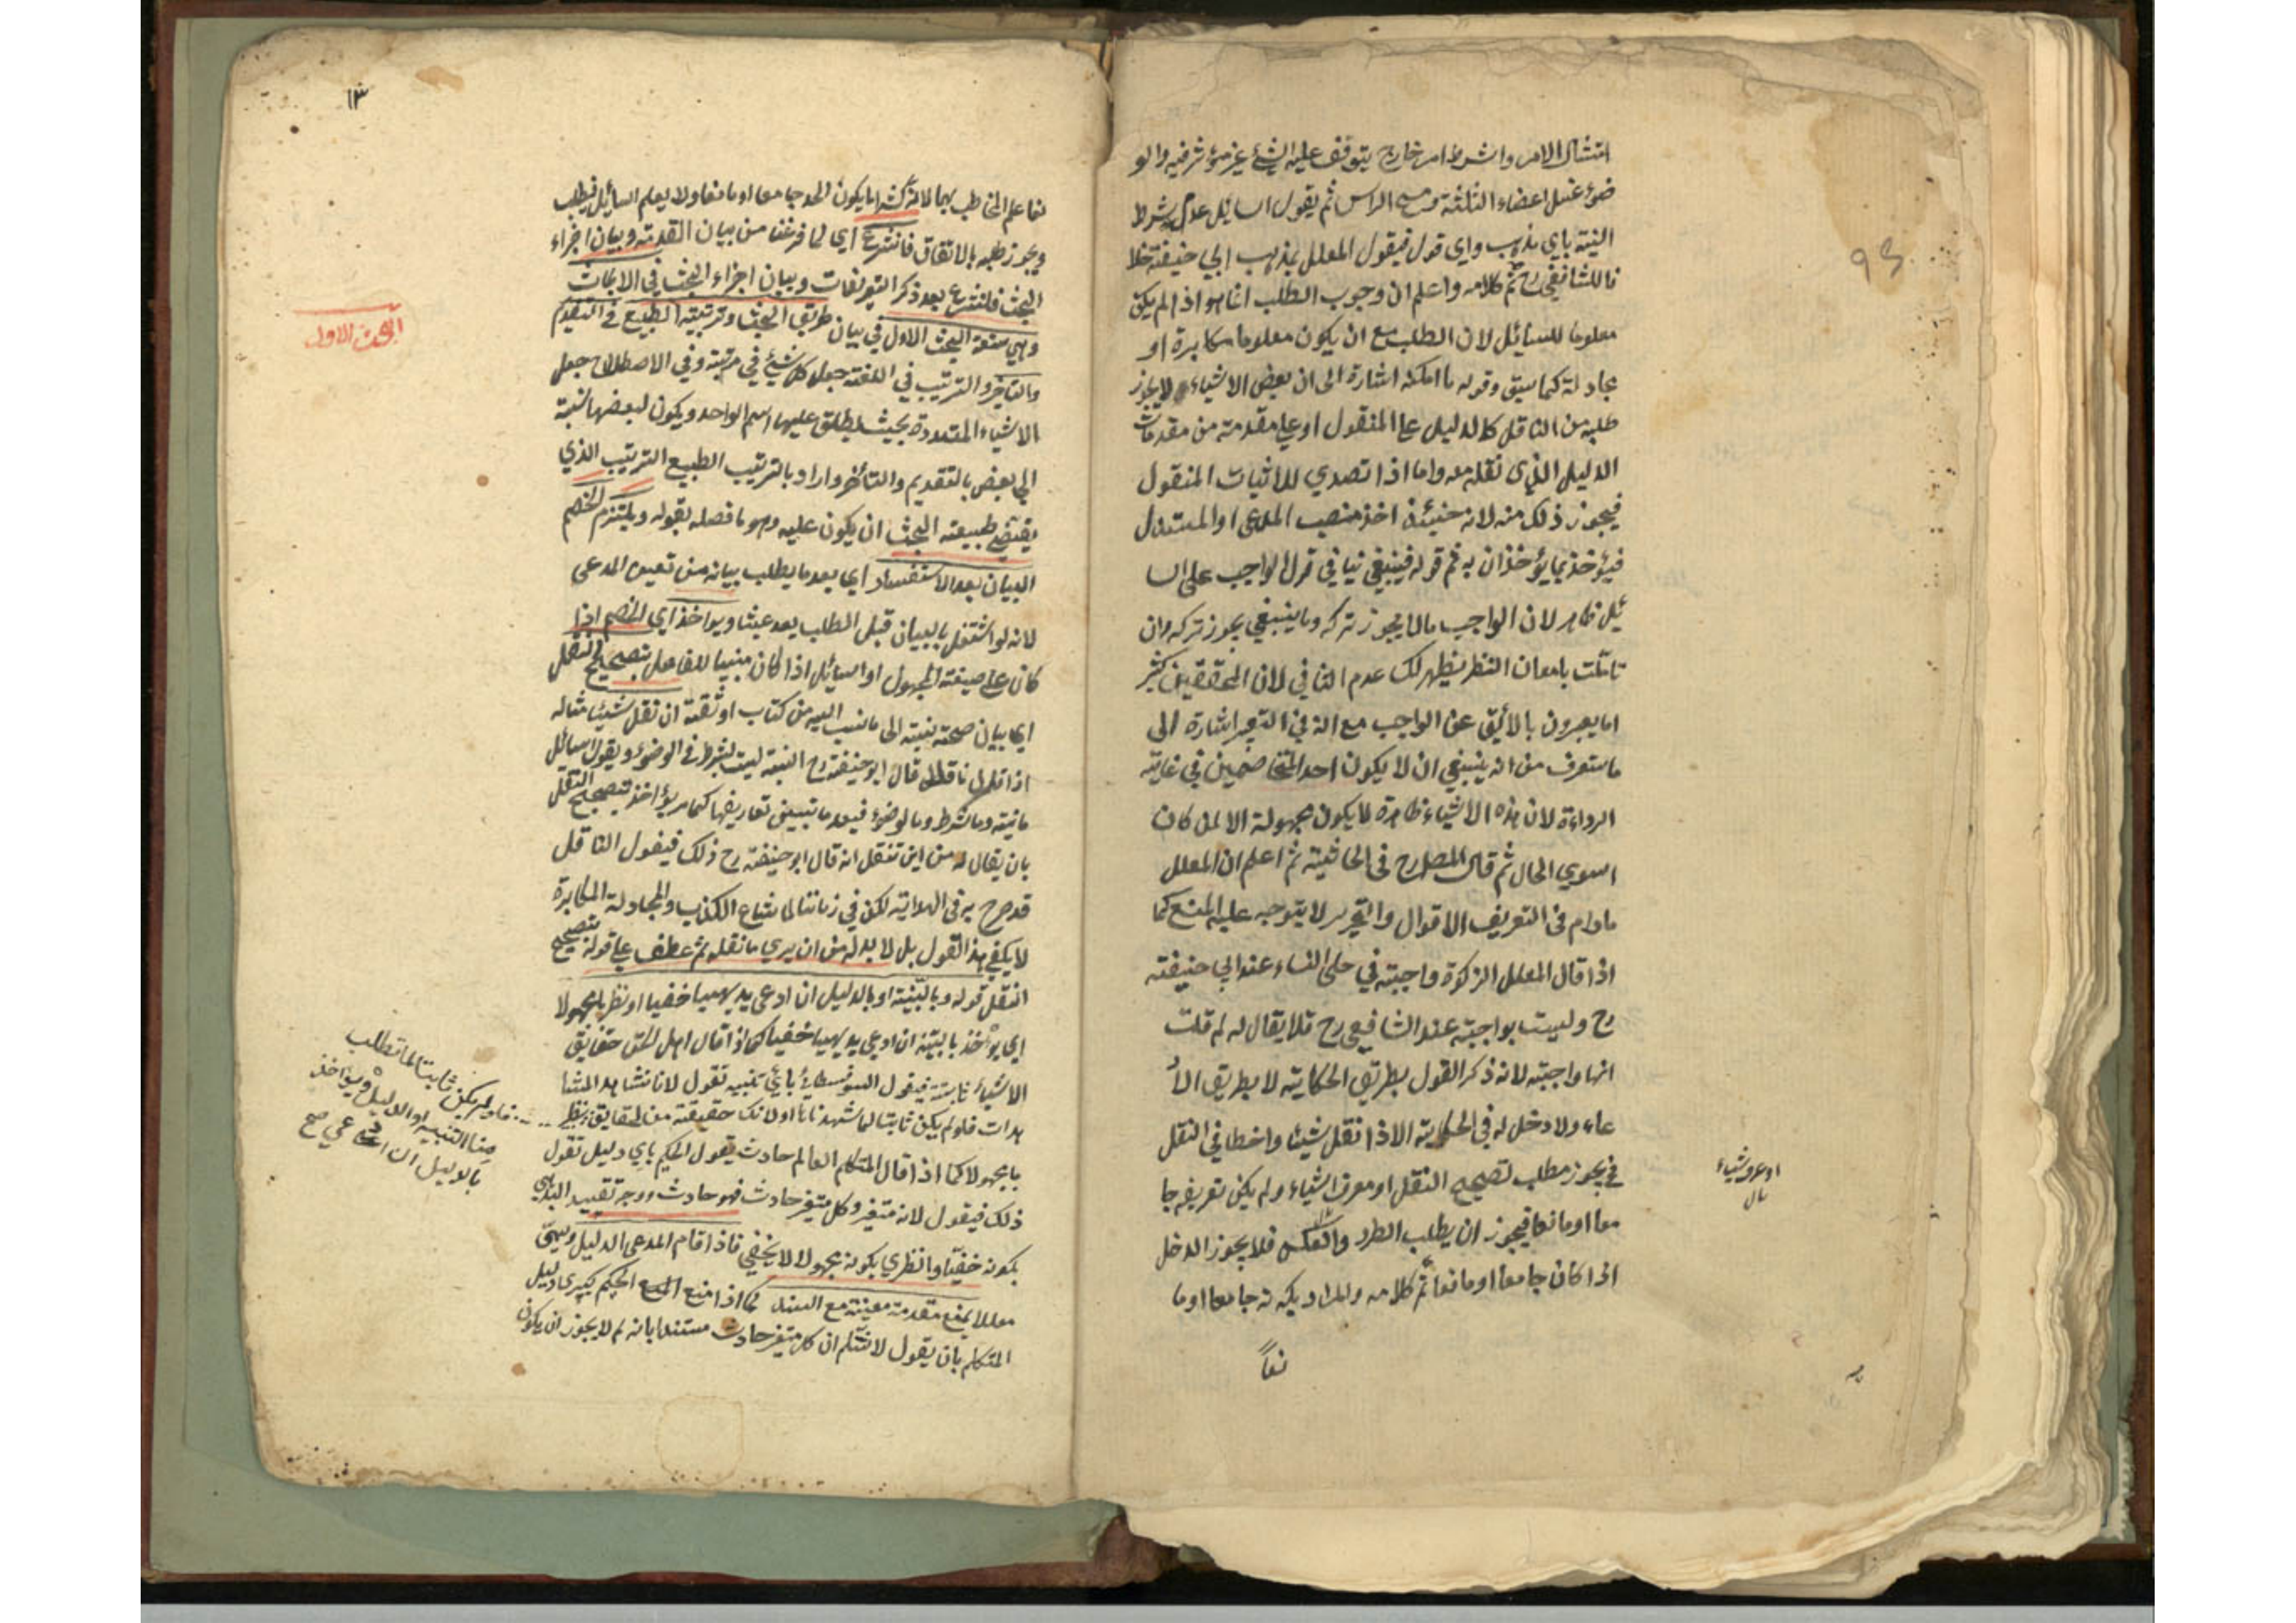 امتثال الامر والشرط امر خارج يتوقف عليه الشئ غير مؤثر فيه والو
ضوء غسل اعضاء الثلثة ومسح الراس ثم يقول السائل عدم شرط
النية باي مذهب واي قول فيقول المعلل بمذهب ابي حنيفة خلا
فا للشافعي رح تم كلامه واعلم ان وجوب الطلب انما هو اذا لم يكن
معلوما للسائل لان الطلب مع ان يكون معلوما مكابرة او
مجادلة كما سبق وقوله ما امكنه اشارة الى ان بعض الاشياء لا يجوز
طلبه من الناقل كالدليل على المنقول او على مقدمة من مقدمات
الدليل الذي نقله معه واما اذا تصدي للاثبات المنقول
فيجوز ذلك منه لانه حينئذ اخذ منصب المدعى او المستدل
فيؤخذ بما يؤخذان به ثم قوله فينبغي ينافي قوله الواجب على السا
ئل ظاهر لان الواجب ما لا يجوز تركه وما ينبغي يجوز تركه وان
تاملت بامعان النظر يظهر لك عدم التنافي لان المحققين كثير
اما يعبرون بالأليق عن الواجب مع انه في التعبير اشارة الى
ما ستعرف من انه ينبغي ان لا يكون احد المتخاصمين في غاية
الرداءة لان هذه الاشياء ظاهرة لا يكون مجهولة الا لمن كان
اسوي الحال ثم قال المص رح فى الحاشية ثم اعلم ان المعلل
مادام فى التعريف الاقوال والتحرير لا يتوجه عليه المنع كما
اذا قال المعلل الزكوة واجبة في حلى النساء عند ابي حنيفة
رح وليست بواجبة عند الشافعي رح فلا يقال له لم قلت
انها واجبة لانه ذكر القول بطريق الحكاية لا بطريق الاد
عاء ولا دخل له فى الحكاية الا اذا نقل شيئا واخطا في النقل
فيجوز مطلب لتصحيح النقل او معرف الشياء ولم يكن تعريفه جا
معا او مانعا فيجوز ان يطلب الطرد والعكس فلا يجوز الدخل
اذا كان جامعا او مانعا تم كلامه والمراد بكونه جامعا او ما
نعاً
١٣
نعا علم المخاطب بهما لانه كثيرا ما يكون الحد جامعا او مانعا ولا يعلم السائل فيطلب
ويجوز طلبه بالاتفاق فانشرع اي لما فرغنا من بيان المقدمة وبيان اجزاء
البحث فلنشرع بعد ذكر التعريفات وبيان اجزاء البحث في الابحاث
وهي تسعة البحث الاول في بيان طريق البحث وترتيبه الطبيع في التقديم
والتاخير والترتيب في اللغة جعل كل شيئ في مرتبة وفي الاصطلاح جعل
الاشياء المتعددة بحيث يطلق عليها اسم الواحد ويكون لبعضها نسبة
الى بعض بالتقديم والتأخر واراد بالترتيب الطبيع الترتيب الذي
يقتضي طبيعة البحث ان يكون عليه وهو ما فصله بقوله ويلتزم الخصم
البيان بعد الاستفسار اي بعد ما يطلب بيانه من تعيين المدعى
لانه لو اشتغل بالبيان قبل الطلب يعد عبثا ويواخذ اي الخصم اذا
كان على صيغة المجهول او السائل اذا كان مبنيا للفاعل بتصحيح النقل
اي بيان صحة نسبته الى ما نسب اليه من كتاب او ثقة ان نقل شيئا مثاله
اذا قال ناقل قال ابو حنيفة رح النية ليست بشرط في الوضوء ويقول السائل
ما نية وما شرط وما لوضوء فبعد ما تبيين تعاريفها كما مر يؤاخذ بتصحيح النقل
بان يقال له من اين تنقل انه قال ابو حنيفة رح ذلك فيقول الناقل
قد صرح به فى الهداية لكن في زماننا لما شاع الكذب والمجادلة المكابرة
لا يكفي هذا القول بل لا بد له من ان يري ما نقله ثم عطف على قوله بتصحيح
النقل قوله وبالتنبيه او بالدليل ان ادعى بديهيا خفيا او نظريا مجهولا
اي يؤخذ بالتنبيه ان ادعي بديهيا خفيا كما اذا قال اهل الحق حقايق
الاشياء ثابتة فيقول السوفسطائي باي تنبيه تقول لانا نشاهد المشا
هدات فلو لم يكن ثابتا لما شهدنا او لانك حقيقة من الحقايق
يا مجهولا كما اذا قال المتكلم العالم حادث يقول الحكيم باي دليل تقول
ذلك فيقول لانه متغير وكل متغير حادث فهو حادث ووجه تقييد البديهي
بكونه خفيا والنظري بكونه مجهولا لا يخفي فاذا اقام المدعى الدليل ويسمى
معللا يمنع مقدمة معينة مع السند كما اذا منع الحكيم كبري دليل
المتكلم بان يقول لا نسلم ان كل متغير حادث مستندا بانه لم لا يجوز ان يكون
البحث الاول